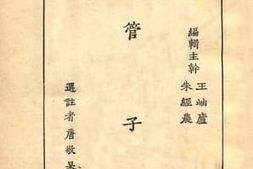 編輯主幹
王岫廬
朱經農
管子
選註者唐敬杲